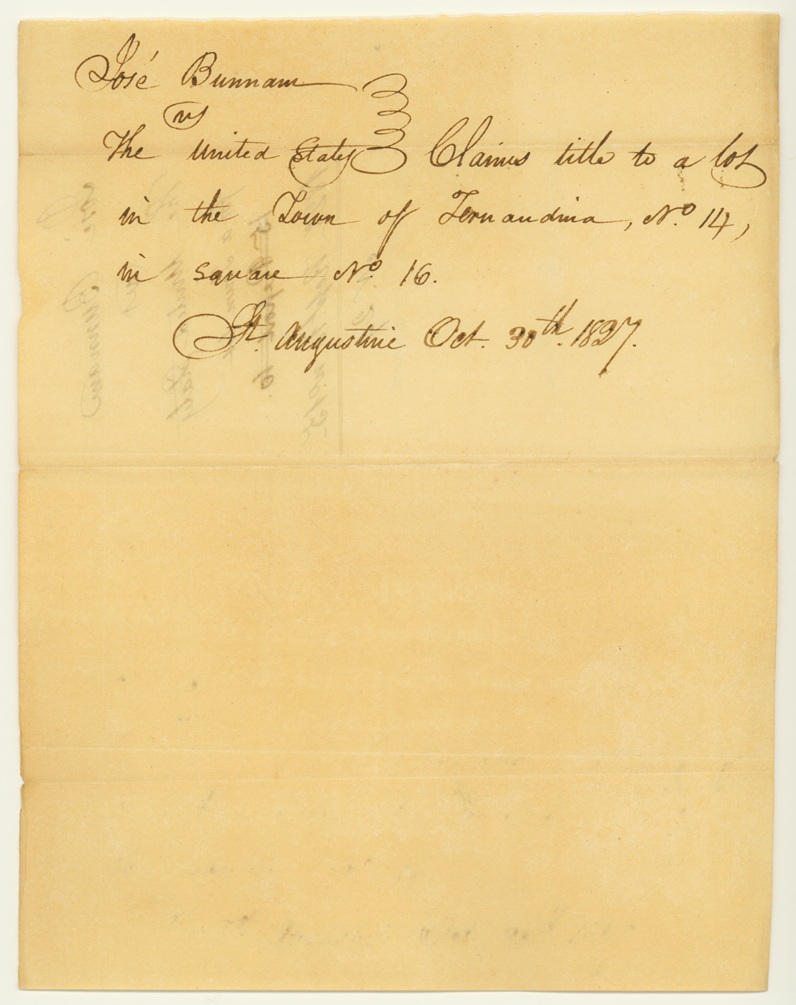 José Bunnam
vs
The United States Claims title to a lot
in the Town of Fernandina, No. 14,
in square No. 16.
St. Augustine Oct. 30th. 1827.